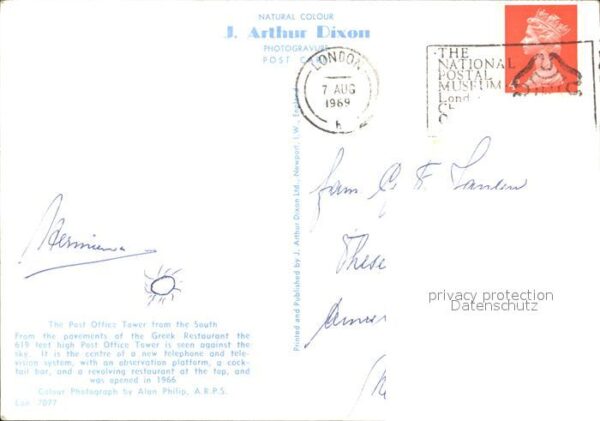 NATURAL COLOUR
J. Arthur Dixon
PHOTOGRAVURE
POST
LONDON
7 AUG
1969
THE
NATIONAL
POSTAL
MUSEUM
Lond
Printed and Published by J. Arthur Dixon Ltd., Newport, I.W., England
These
privacy protection
Datenschutz
The Post Office Tower from the South
From the pavements of the Greek Restaurant the
619 feet high Post Office Tower is seen against the
sky. It is the centre of a new telephone and tele-
vision system, with an observation platform, a cock-
tail bar, and a revolving restaurant at the top, and
was opened in 1966
Colour Photograph by Alan Philip, A.R.P.S.
7077